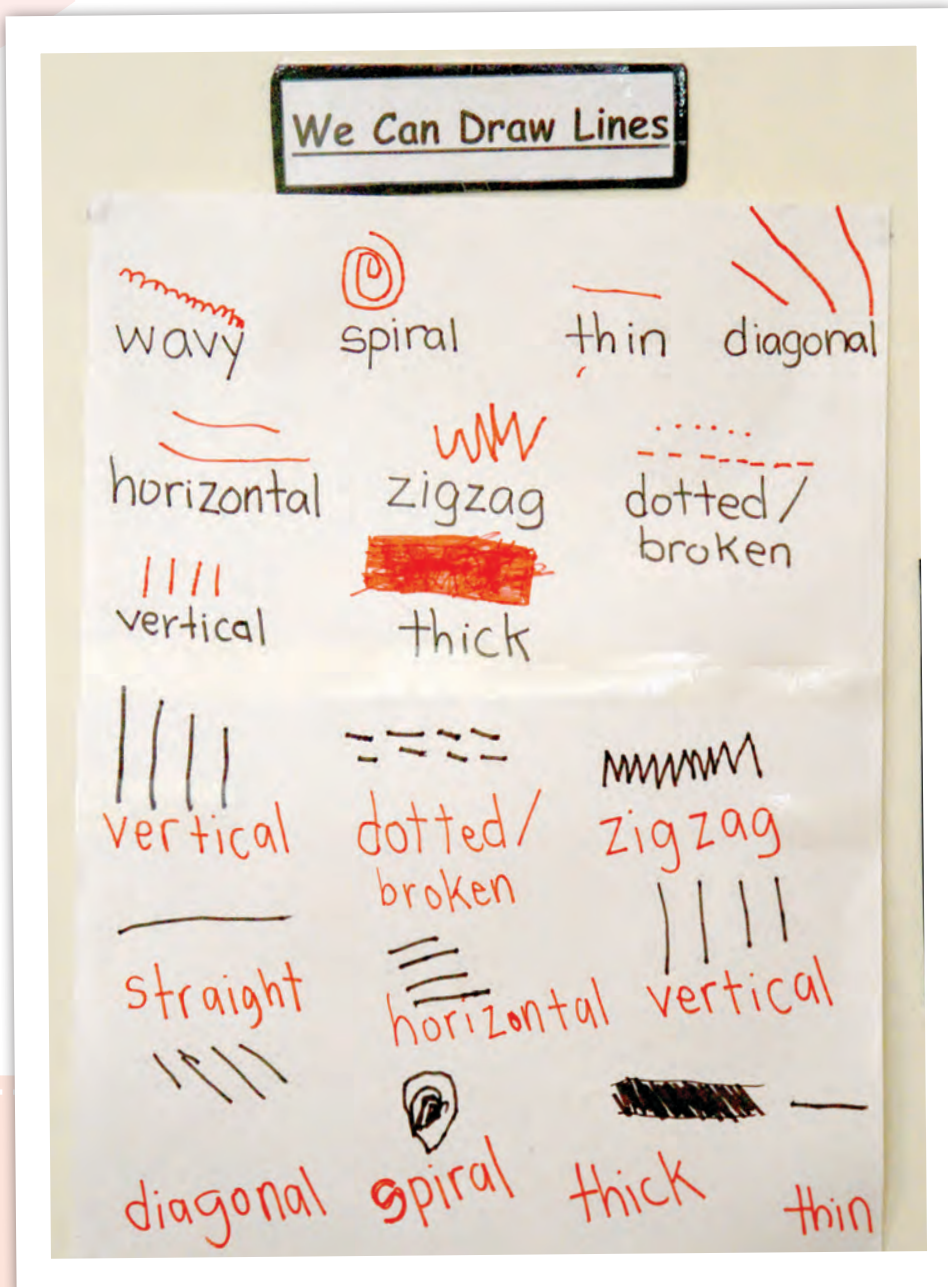 We Can Draw Lines
wavy spiral thin diagonal
horizontal zigzag dotted/
broken
vertical thick
vertical dotted/ zigzag
broken
straight horizontal vertical
diagonal spiral thick thin